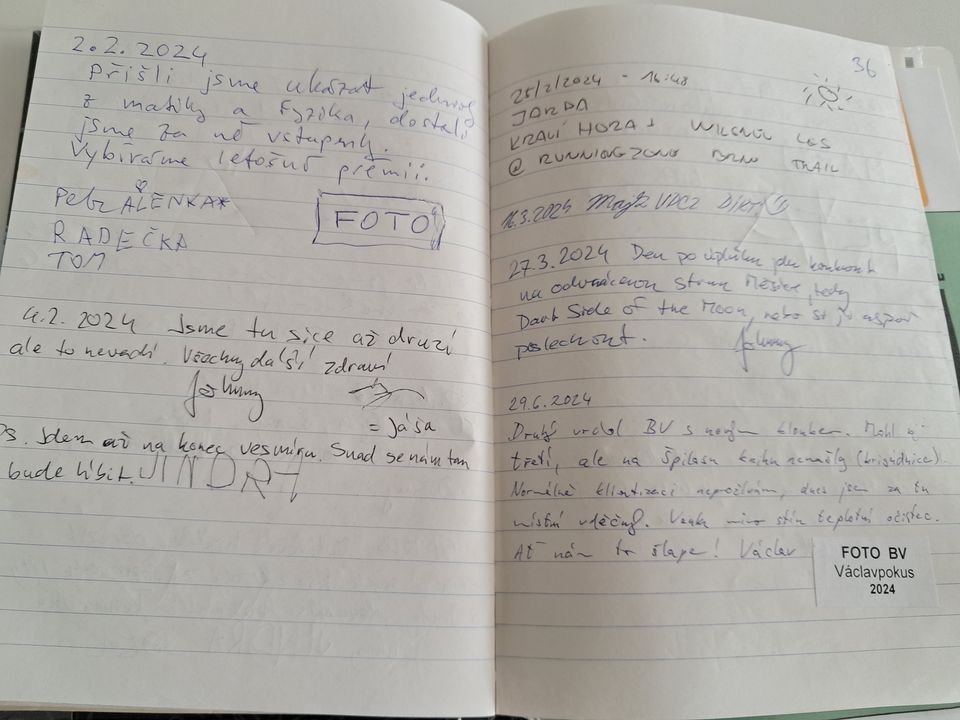 2.2.2024
Přišli jsme ukázat jedničky
z matiky a Fyzika, dostali
jsme za ně vstupenky.
Vybíráme letošní prémii.
Petr ALENKA*
RADEČKA
TOM
FOTO
4.2.2024 Jsme tu sice až druzí
ale to nevadí. Všechny další zdraví
Johnny
= Jáša
PS. Jdem až na konec vesmíru. Snad se nám tam
bude líbit. JINDRA
36
25/2/2024 - 14:48
JARDA
KRAVÍ HORA + WILSONŮV LES
@ RUNNINGZONE BRNO TRAIL
16.3.2024
27.3.2024 Den po úplňku jdu kouknout
na odvrácenou stranu Měsíce, tedy
Dark Side of the Moon, nebo si ju aspoň
poslechnout. Johnny
29.6.2024
Druhý vrchol BV s novým kloubem. Mohl být
třetí, ale na Špilasu knihu nenašly (brigádnice).
Normálně klimatizaci nepoužívám, dnes jsem za tu
místní vděčný. Venku mimo stín teplotní očistec.
Ať nám to šlape! Václav
FOTO BV
Václavpokus
2024